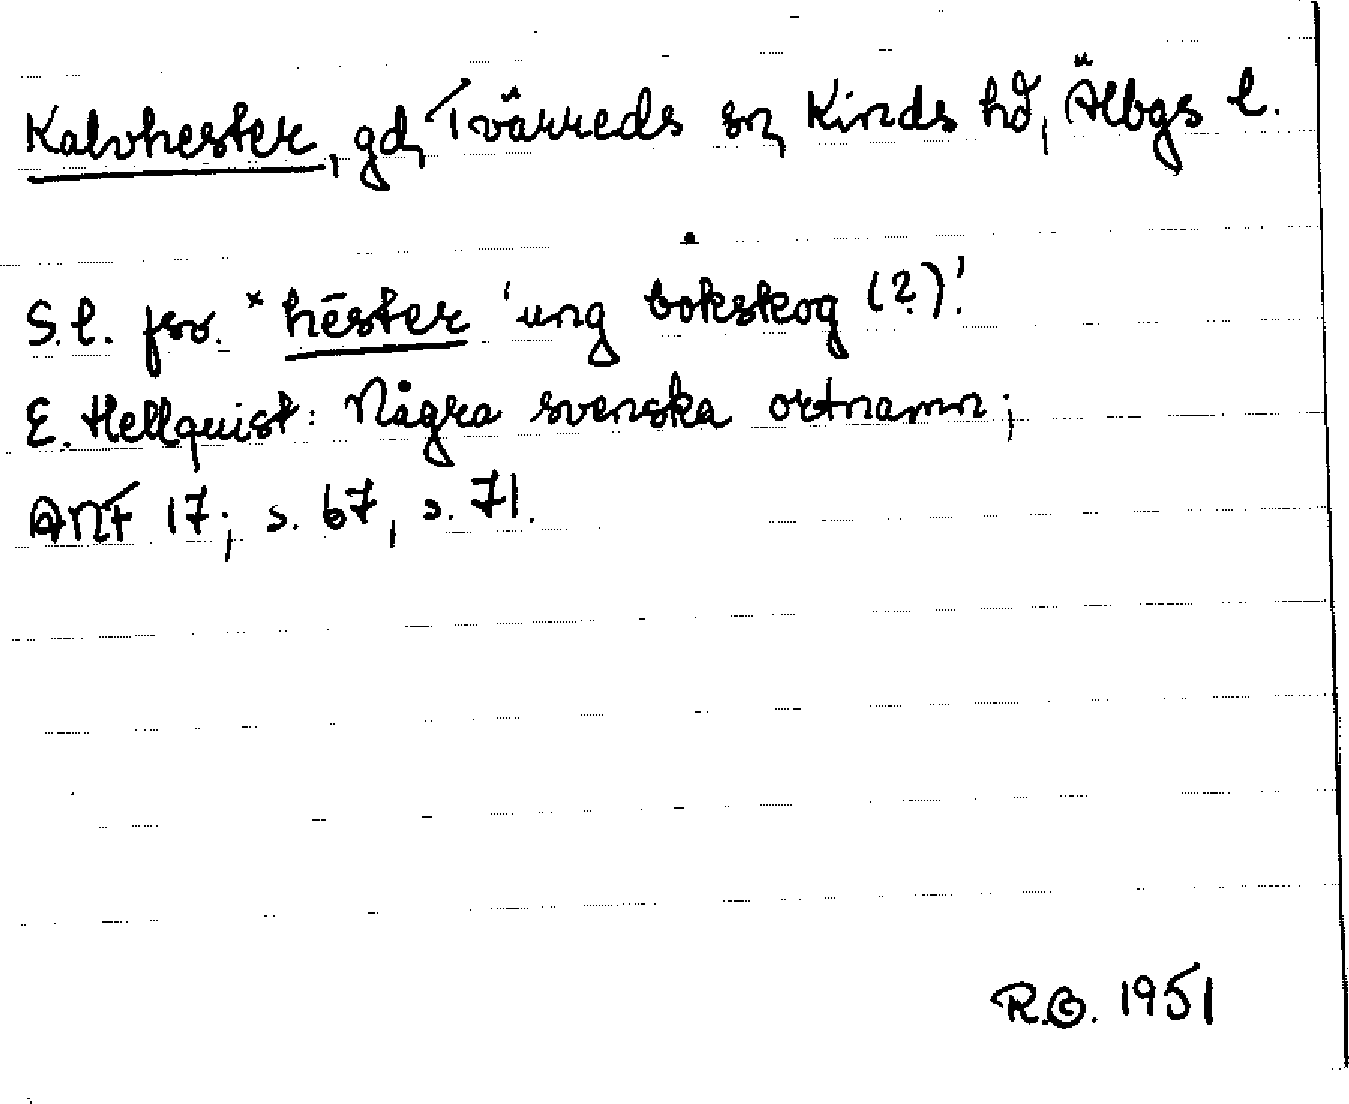 Kalvhester, gd, Tvärreds sn, Kinds hd, Älbgs l.
S.l. fsv. *hēster 'ung bokskog (?)'.
E. Hellquist: Några svenska ortnamn;
ANF 17; s. 67, s. 71.
R.O. 1951